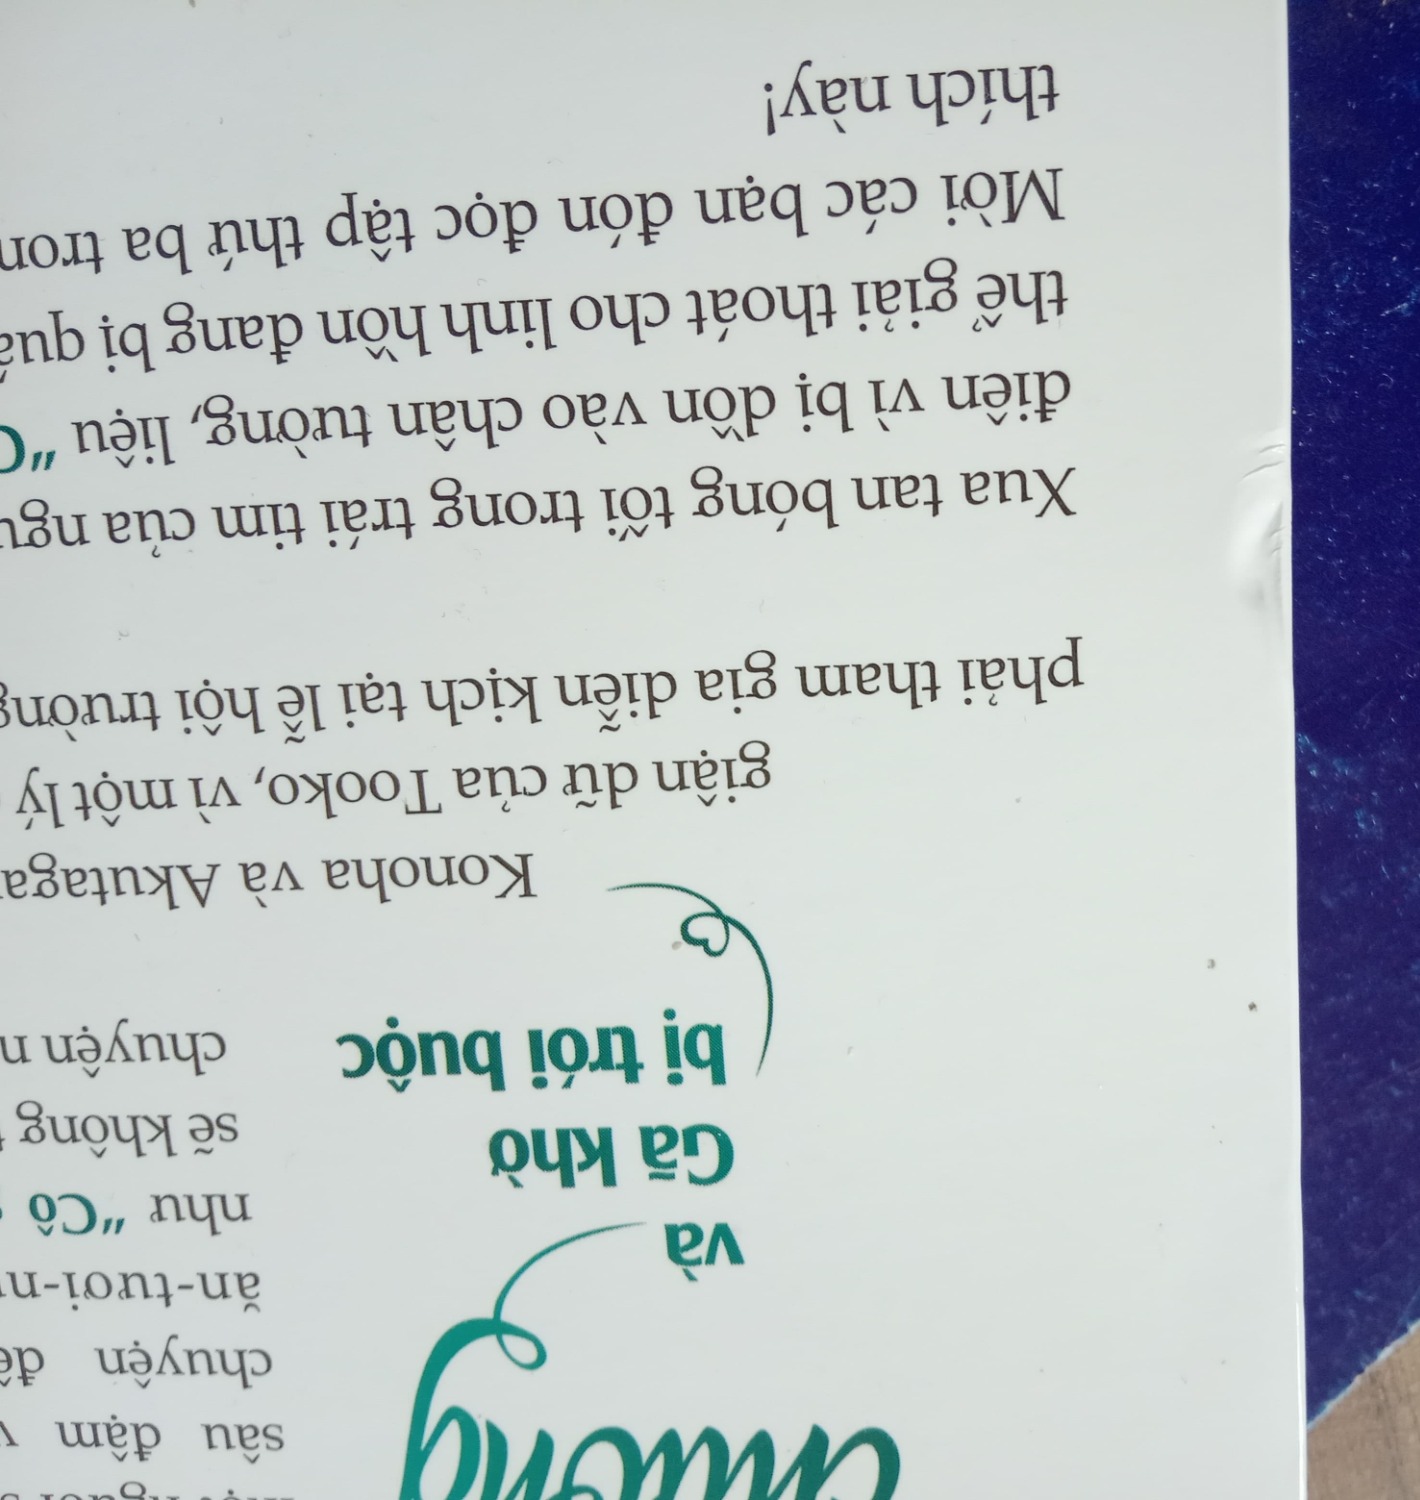 sâu đậm
chuyện
ăn-tươi-n
như "Cô
sẽ không
chuyện n
chương
và
Gã khờ
bị trói buộc
Konoha và Akutaga
giận dữ của Tooko, vì một lý
phải tham gia diễn kịch tại lễ hội trường
Xua tan bóng tối trong trái tim của ngư
điên vì bị dồn vào chân tường, liệu "C
thể giải thoát cho linh hồn đang bị quá
Mời các bạn đón đọc tập thứ ba tron
thích này!